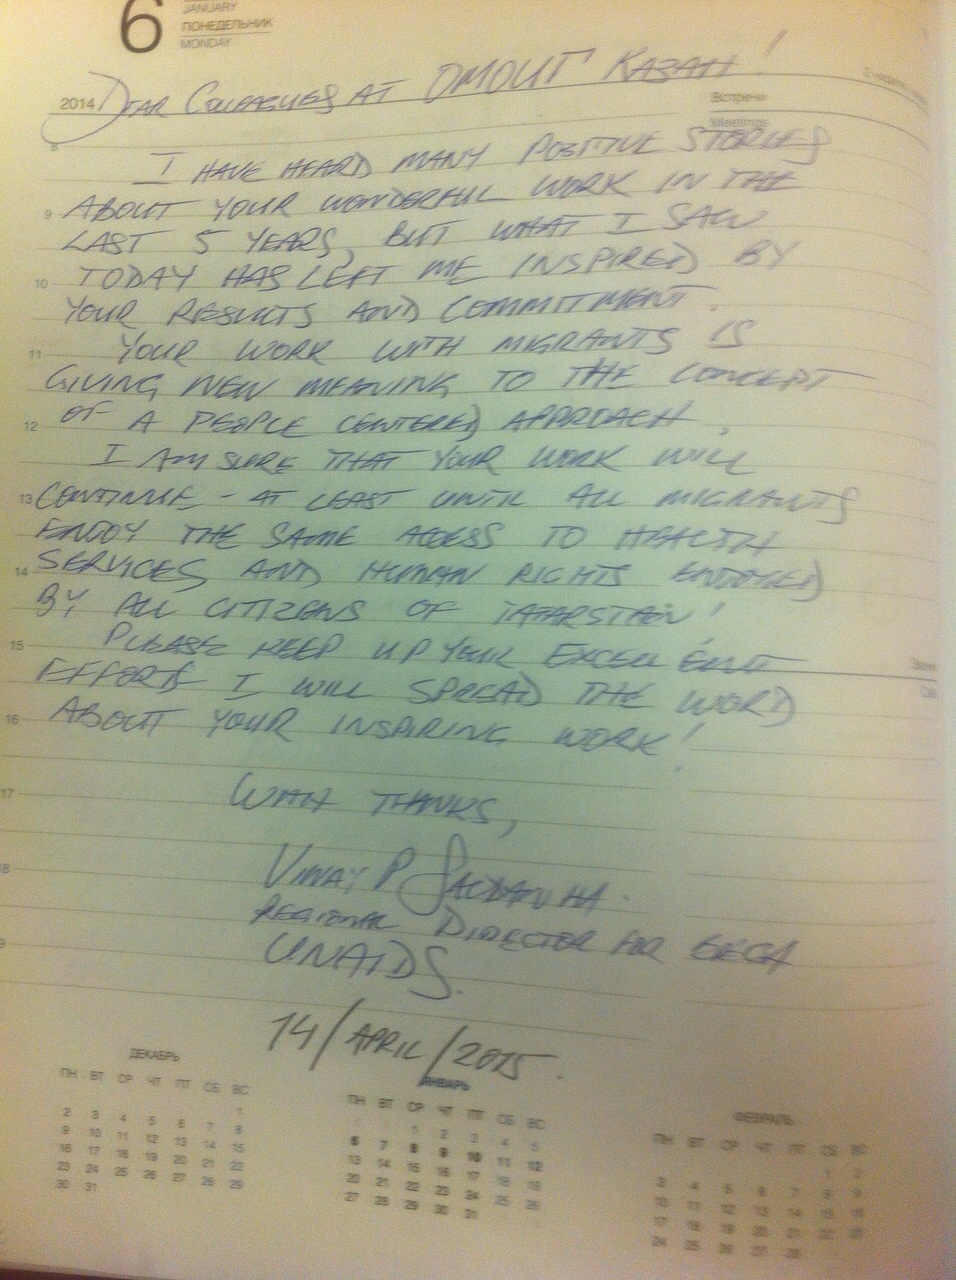 6
JANUARY
ПОНЕДЕЛЬНИК
MONDAY
2014
Встречи
Meetings
DEAR COLLEAGUES AT ОМОЦГ КАЗАН!
I HAVE HEARD MANY POSITIVE STORIES
9 ABOUT YOUR WONDERFUL WORK IN THE
LAST 5 YEARS, BUT WHAT I SAW
10 TODAY HAS LEFT ME INSPIRED BY
YOUR RESULTS AND COMMITMENT.
11 YOUR WORK WITH MIGRANTS IS
GIVING NEW MEANING TO THE CONCEPT
12 OF A PEOPLE CENTERED APPROACH.
I AM SURE THAT YOUR WORK WILL
13 CONTINUE - AT LEAST UNTIL ALL MIGRANTS
ENJOY THE SAME ACCESS TO HEALTH
14 SERVICES AND HUMAN RIGHTS ENJOYED
BY ALL CITIZENS OF TATARSTAN!
15 PLEASE KEEP UP YOUR EXCELLENT
EFFORTS I WILL SPREAD THE WORD
16 ABOUT YOUR INSPIRING WORK!
17 WITH THANKS,
18 VINAY P SALDANHA.
REGIONAL DIRECTOR FOR EECA
UNAIDS.
14/APRIL/2015.
ДЕКАБРЬ
ПН ВТ СР ЧТ ПТ СБ ВС
1
2 3 4 5 6 7 8
9 10 11 12 13 14 15
16 17 18 19 20 21 22
23 24 25 26 27 28 29
30 31
ЯНВАРЬ
ПН ВТ СР ЧТ ПТ СБ ВС
1 2 3 4 5
6 7 8 9 10 11 12
13 14 15 16 17 18 19
20 21 22 23 24 25 26
27 28 29 30 31
ФЕВРАЛЬ
ПН ВТ СР ЧТ ПТ СБ ВС
1 2
3 4 5 6 7 8 9
10 11 12 13 14 15 16
17 18 19 20 21 22 23
24 25 26 27 28